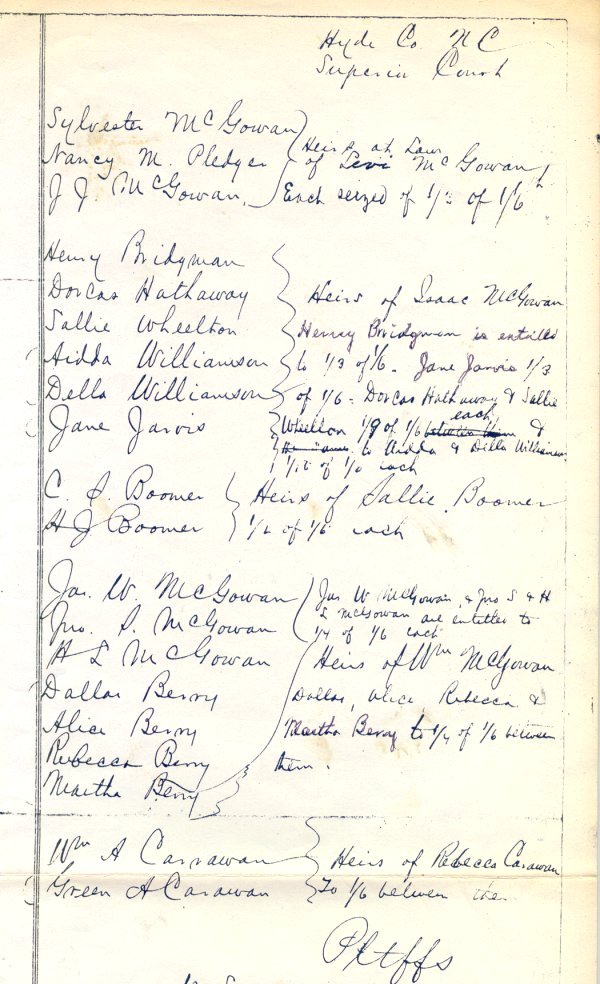 Hyde Co. NC
Superior Court
Sylvester McGowan
Nancy M. Pledger
J J. McGowan.
Heirs at Law
of Levi McGowan
Each seized of 1/3 of 1/6th
Henry Bridgman
Dorcas Hathaway
Sallie Wheelton
Aidda Williamson
Della Williamson
Jane Jarvis
Heirs of Isaac McGowan
Henry Bridgman is entitled
to 1/3 of 1/6 - Jane Jarvis 1/3
of 1/6 - Dorcas Hathaway & Sallie
Wheelton 1/9 of 1/6 between them each &
to Aidda & Della Williamson
of 1/6 each
C. S. Boomer
H J Boomer
Heirs of Sallie Boomer
1/2 of 1/6 each
Jas. W. McGowan
Jno. S. McGowan
H L McGowan
Dallas Berry
Alice Berry
Rebecca Berry
Martha Berry
Jas W McGowan, & Jno S & H
L McGowan are entitled to
1/4 of 1/6 each
Heirs of Wm McGowan
Dallas, Alice Rebecca &
Martha Berry to 1/4 of 1/6 between
them.
Wm A Carrawan
Green A Carawan
Heirs of Rebecca Carawan
To 1/6 between the
Pltffs